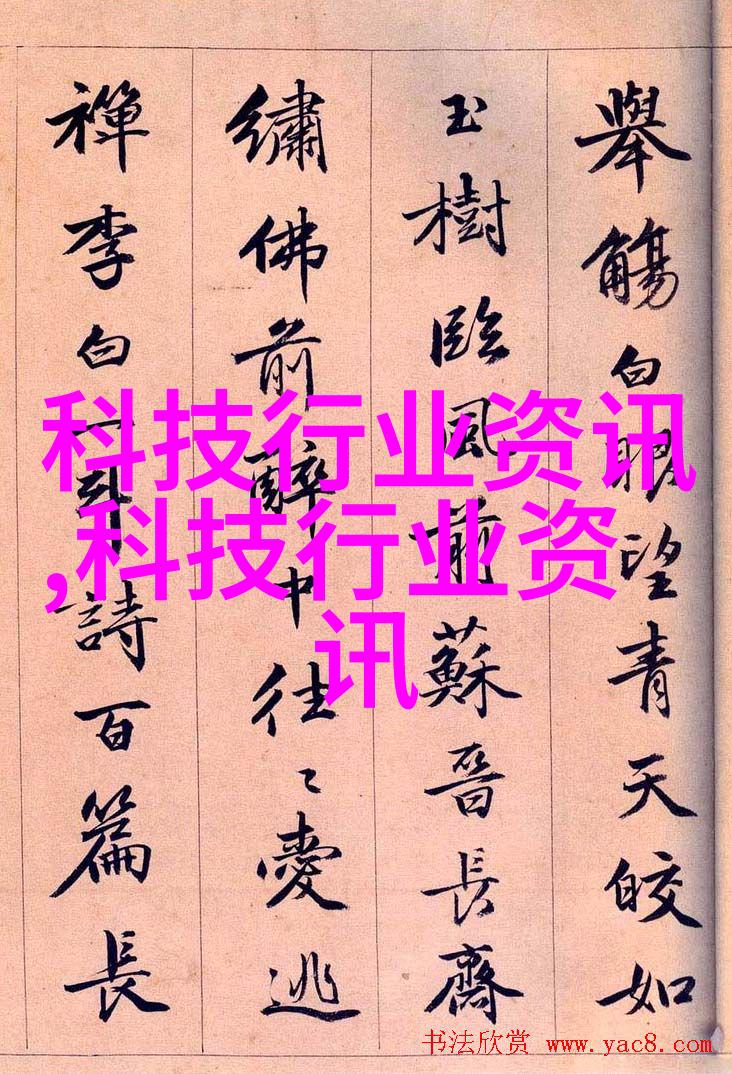 舉觴白眼望青天皎如
玉樹臨風前蘇晉長齋
繡佛前醉中往〻愛逃
禪李白一斗詩百篇長
科技行业资讯
,科技行业资
讯
书法欣赏 www.yac8.com